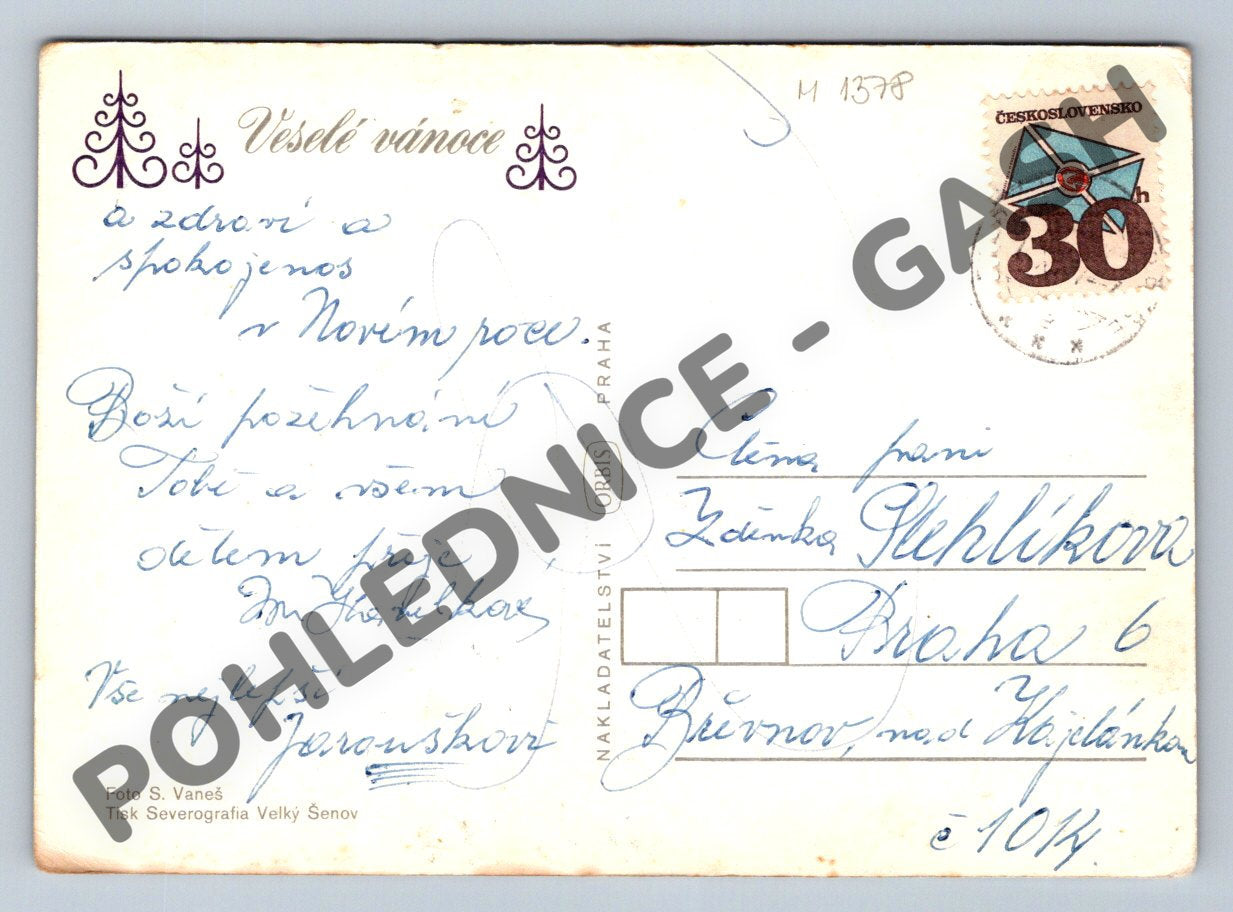 Veselé vánoce
a zdraví a
spokojenos
v Novém roce.
Boží požehnání
Tobě a všem
dětem přeje
Vše nejlepší
Jarouškovi
Foto S. Vaneš
Tisk Severografia Velký Šenov
NAKLADATELSTVÍ ORBIS PRAHA
M 1378
ČESKOSLOVENSKO
30 h
Ctěná paní
Zdeňka Plehlíkova
Praha 6
Břevnov, nad Kajetánkou
č 10
POHLEDNICE - GASH